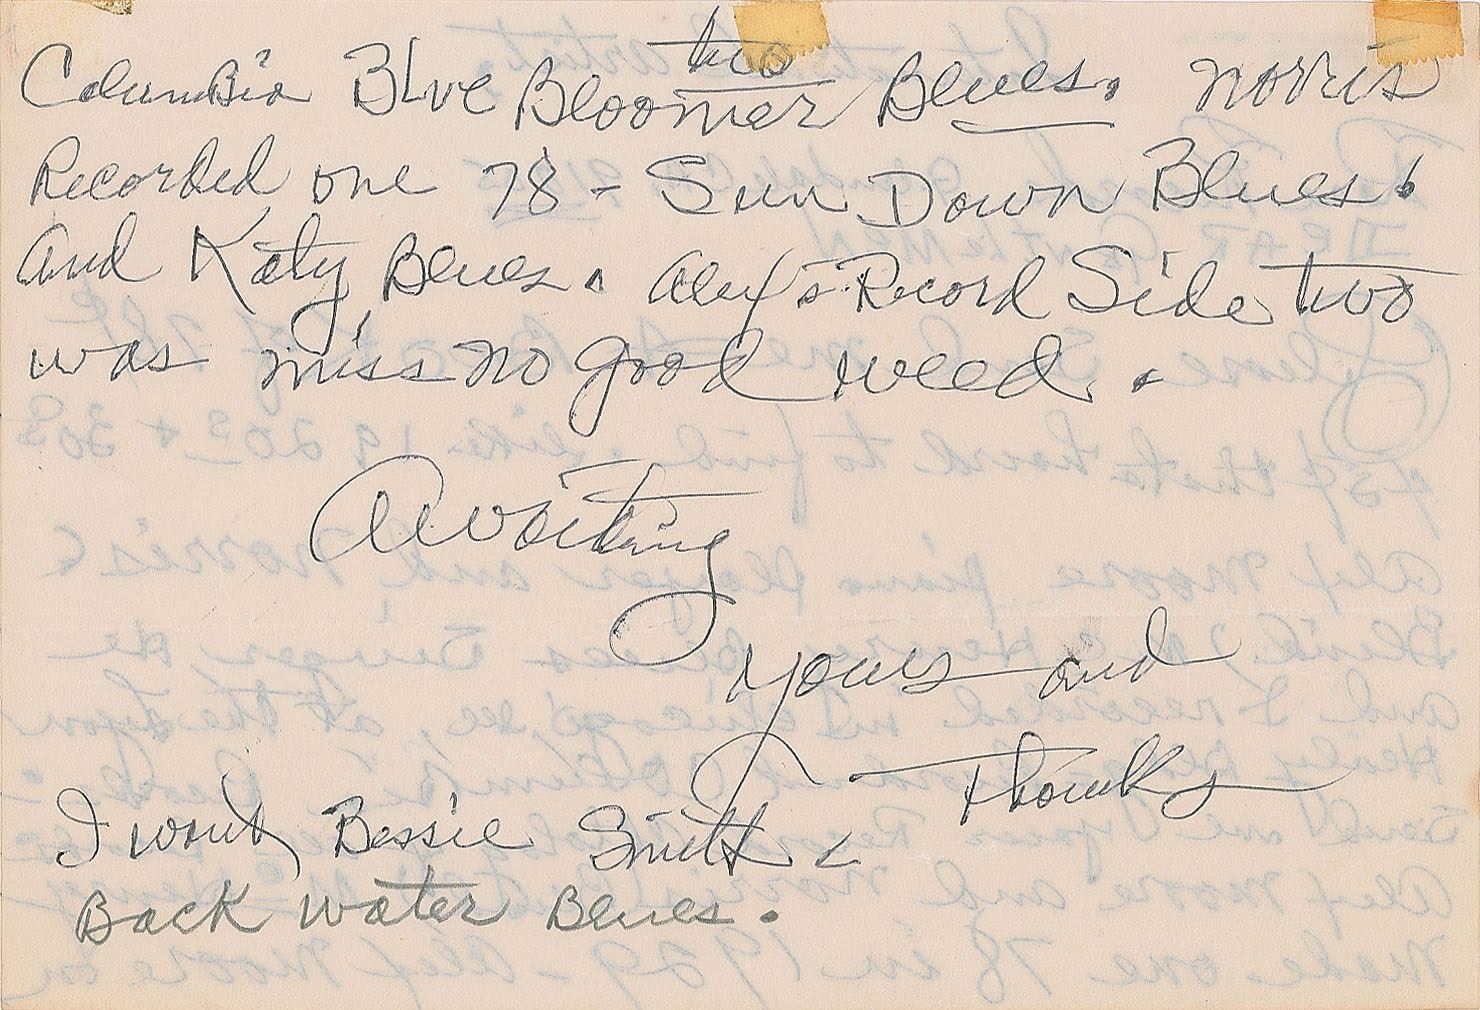 two
Columbia Blue Bloomer Blues. Norris
Recorded one 78 - Sun Down Blues.
and Katy Blues. Alex's Record Side two
was miss no good weed.
Awaiting
yours and
Thanks
I want Bessie Smith
Back Water Blues.